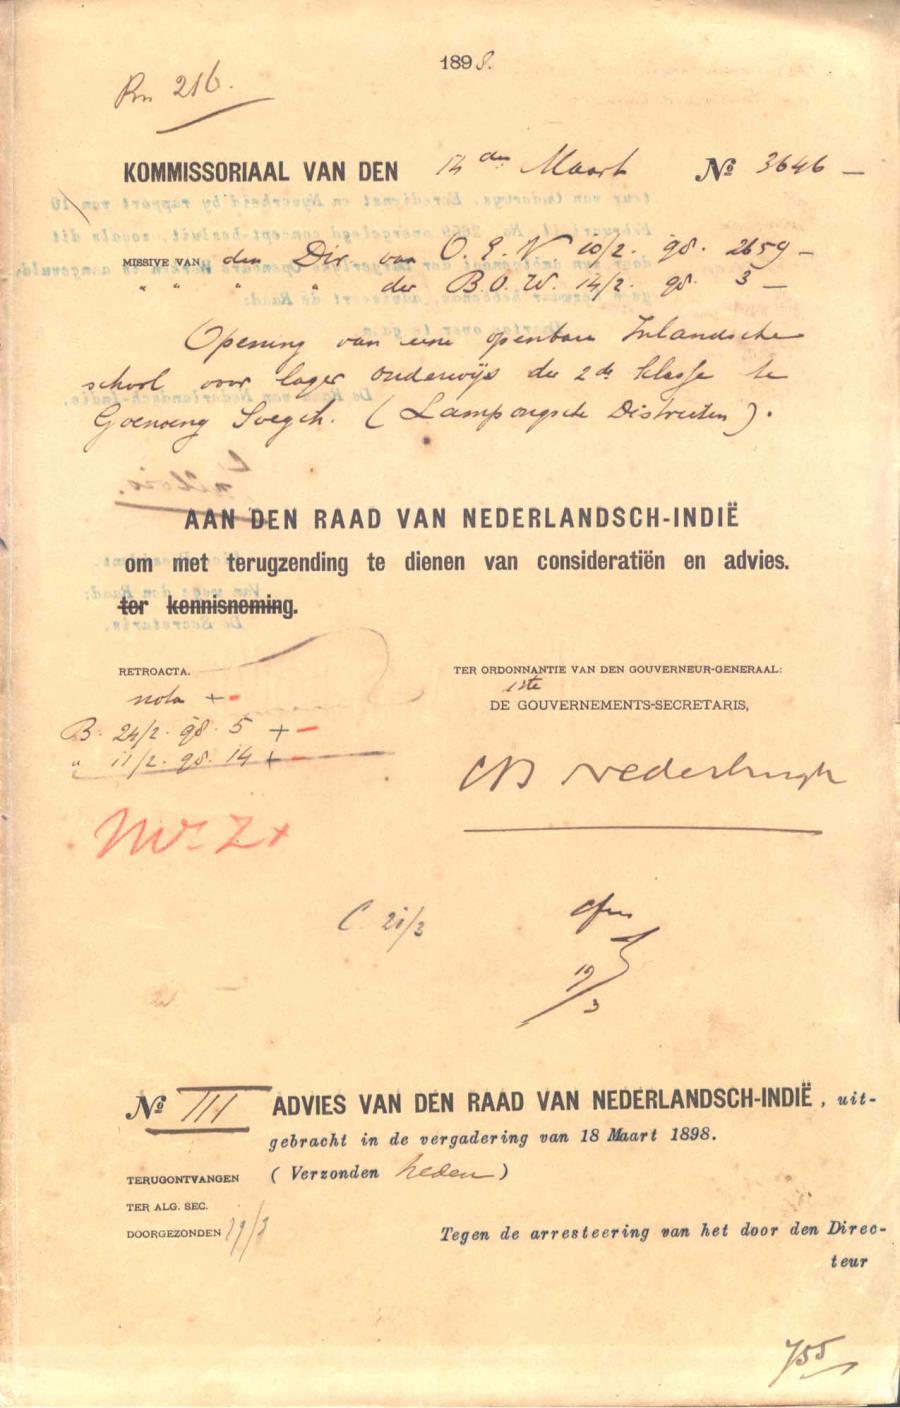 1898.
216.
KOMMISSORIAAL VAN DEN 14den Maart No 3646 —
MISSIVE VAN den Dir. van O. E. N 10/2. 98. 2659 —
" " " " der B. O. W. 14/2. 98. 3 —
Opening van eene openbare Inlandsche
school voor lager onderwijs der 2de klasse te
Goenoeng Soegih. (Lampongsche Districten).
AAN DEN RAAD VAN NEDERLANDSCH-INDIË
om met terugzending te dienen van consideratiën en advies.
ter kennisneming.
RETROACTA.
nota + -
B. 24/2. 98. 5 + -
" 11/2. 98. 14 + -
TER ORDONNANTIE VAN DEN GOUVERNEUR-GENERAAL:
1ste
DE GOUVERNEMENTS-SECRETARIS,
Nederburgh
C. 21/3
19/3
No III ADVIES VAN DEN RAAD VAN NEDERLANDSCH-INDIË, uit-
gebracht in de vergadering van 18 Maart 1898.
(Verzonden heden)
TERUGONTVANGEN
TER ALG. SEC.
DOORGEZONDEN 19/3
Tegen de arresteering van het door den Direc-
teur
755